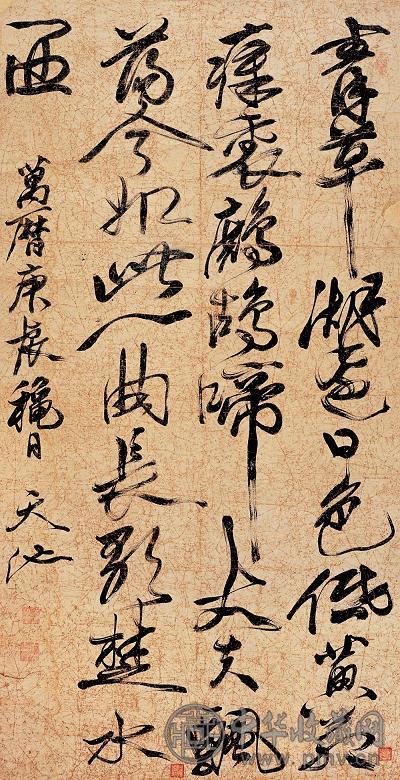 青草湖邊日色低黄茅
瘴裏鷓鴣啼丈夫飄
蕩今如此一曲長歌楚水
西
萬曆庚辰穐日 天池
中华收藏网